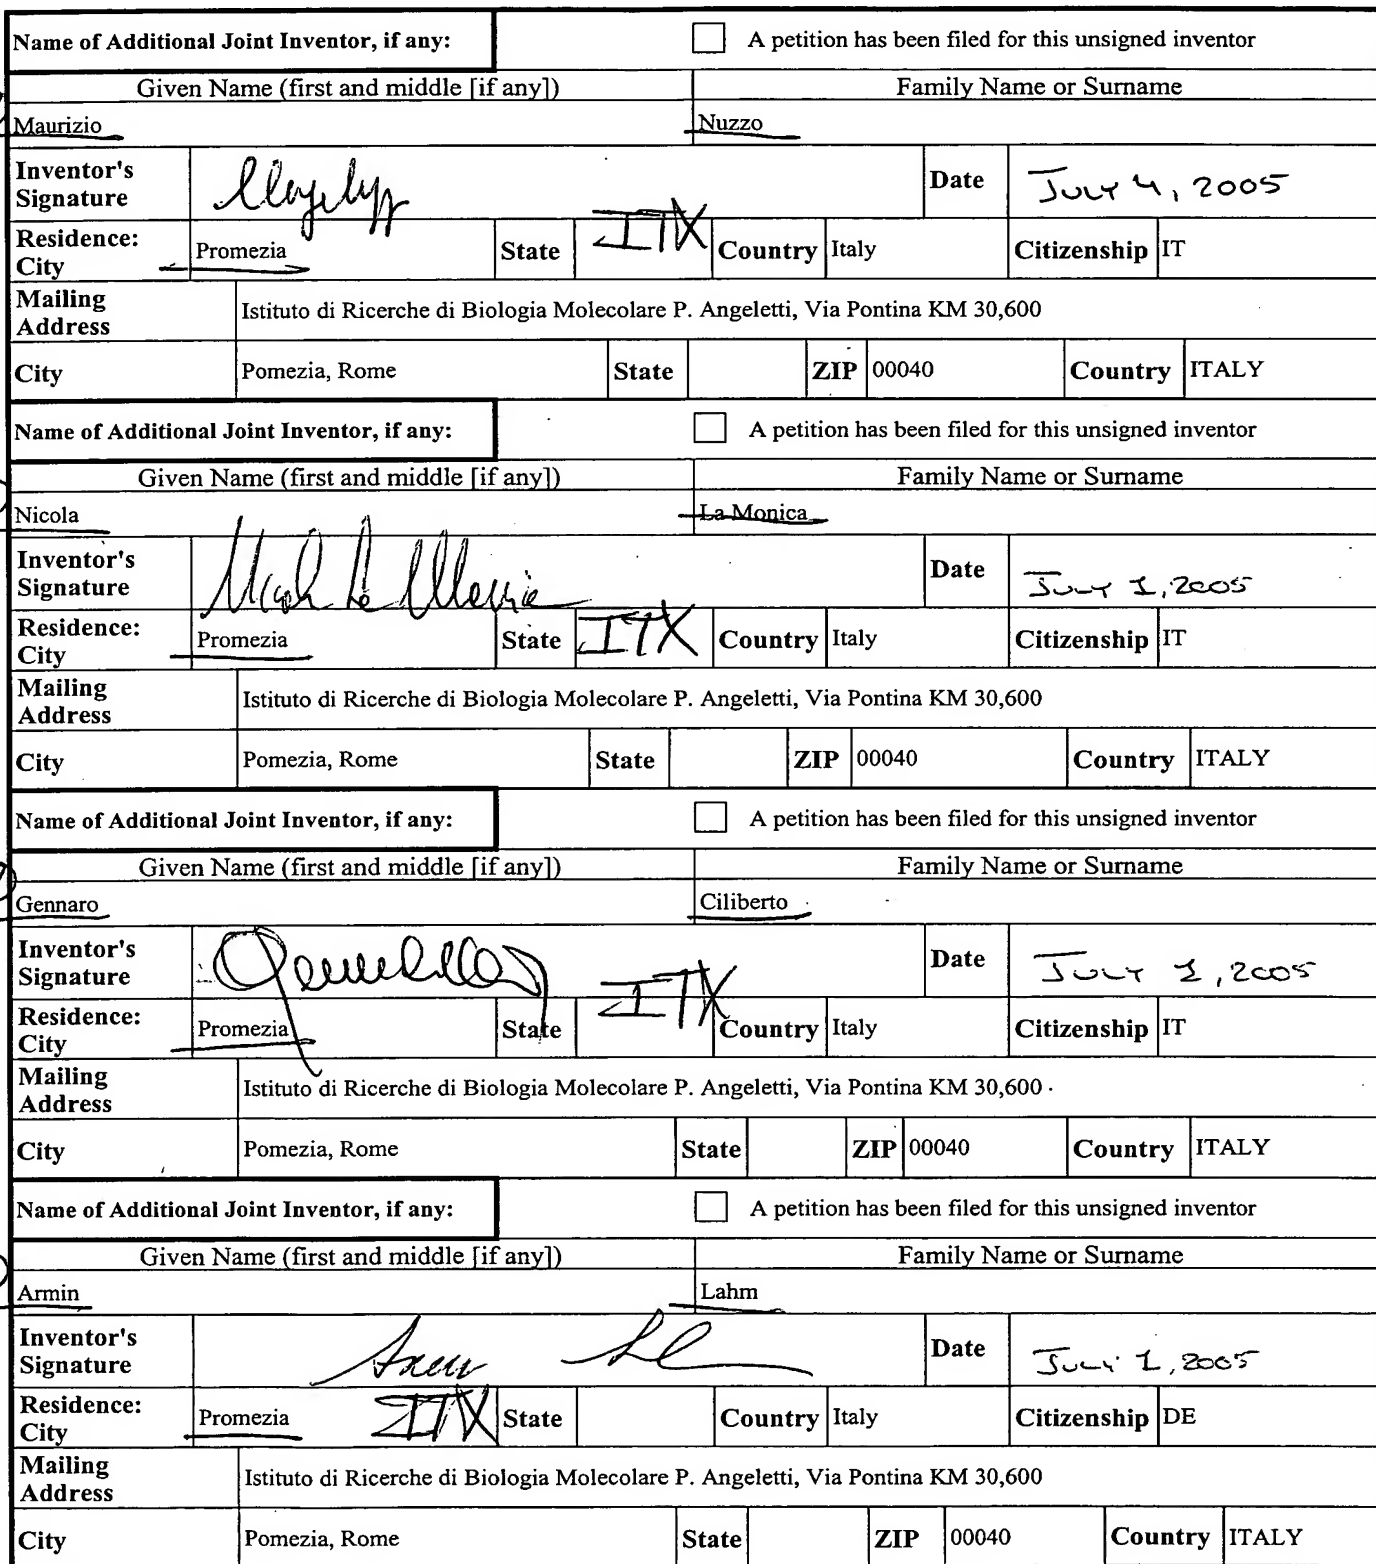 Name of Additional Joint Inventor, if any: A petition has been filed for this unsigned inventor
Given Name (first and middle [if any]) Family Name or Surname
Maurizio Nuzzo
Inventor's Signature Date July 4, 2005
Residence: City Promezia State ITX Country Italy Citizenship IT
Mailing Address Istituto di Ricerche di Biologia Molecolare P. Angeletti, Via Pontina KM 30,600
City Pomezia, Rome State ZIP 00040 Country ITALY
Name of Additional Joint Inventor, if any: A petition has been filed for this unsigned inventor
Given Name (first and middle [if any]) Family Name or Surname
Nicola La Monica
Inventor's Signature Nicola La Monica Date July 1, 2005
Residence: City Promezia State ITX Country Italy Citizenship IT
Mailing Address Istituto di Ricerche di Biologia Molecolare P. Angeletti, Via Pontina KM 30,600
City Pomezia, Rome State ZIP 00040 Country ITALY
Name of Additional Joint Inventor, if any: A petition has been filed for this unsigned inventor
Given Name (first and middle [if any]) Family Name or Surname
Gennaro Ciliberto
Inventor's Signature Date July 1, 2005
Residence: City Promezia State ITX Country Italy Citizenship IT
Mailing Address Istituto di Ricerche di Biologia Molecolare P. Angeletti, Via Pontina KM 30,600
City Pomezia, Rome State ZIP 00040 Country ITALY
Name of Additional Joint Inventor, if any: A petition has been filed for this unsigned inventor
Given Name (first and middle [if any]) Family Name or Surname
Armin Lahm
Inventor's Signature Date July 1, 2005
Residence: City Promezia ITX State Country Italy Citizenship DE
Mailing Address Istituto di Ricerche di Biologia Molecolare P. Angeletti, Via Pontina KM 30,600
City Pomezia, Rome State ZIP 00040 Country ITALY